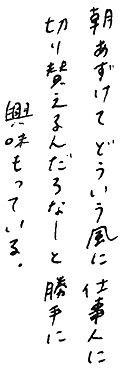 朝あずけてどういう風に仕事人に
切り賛えるんだろなーと勝手に
興味もっている。